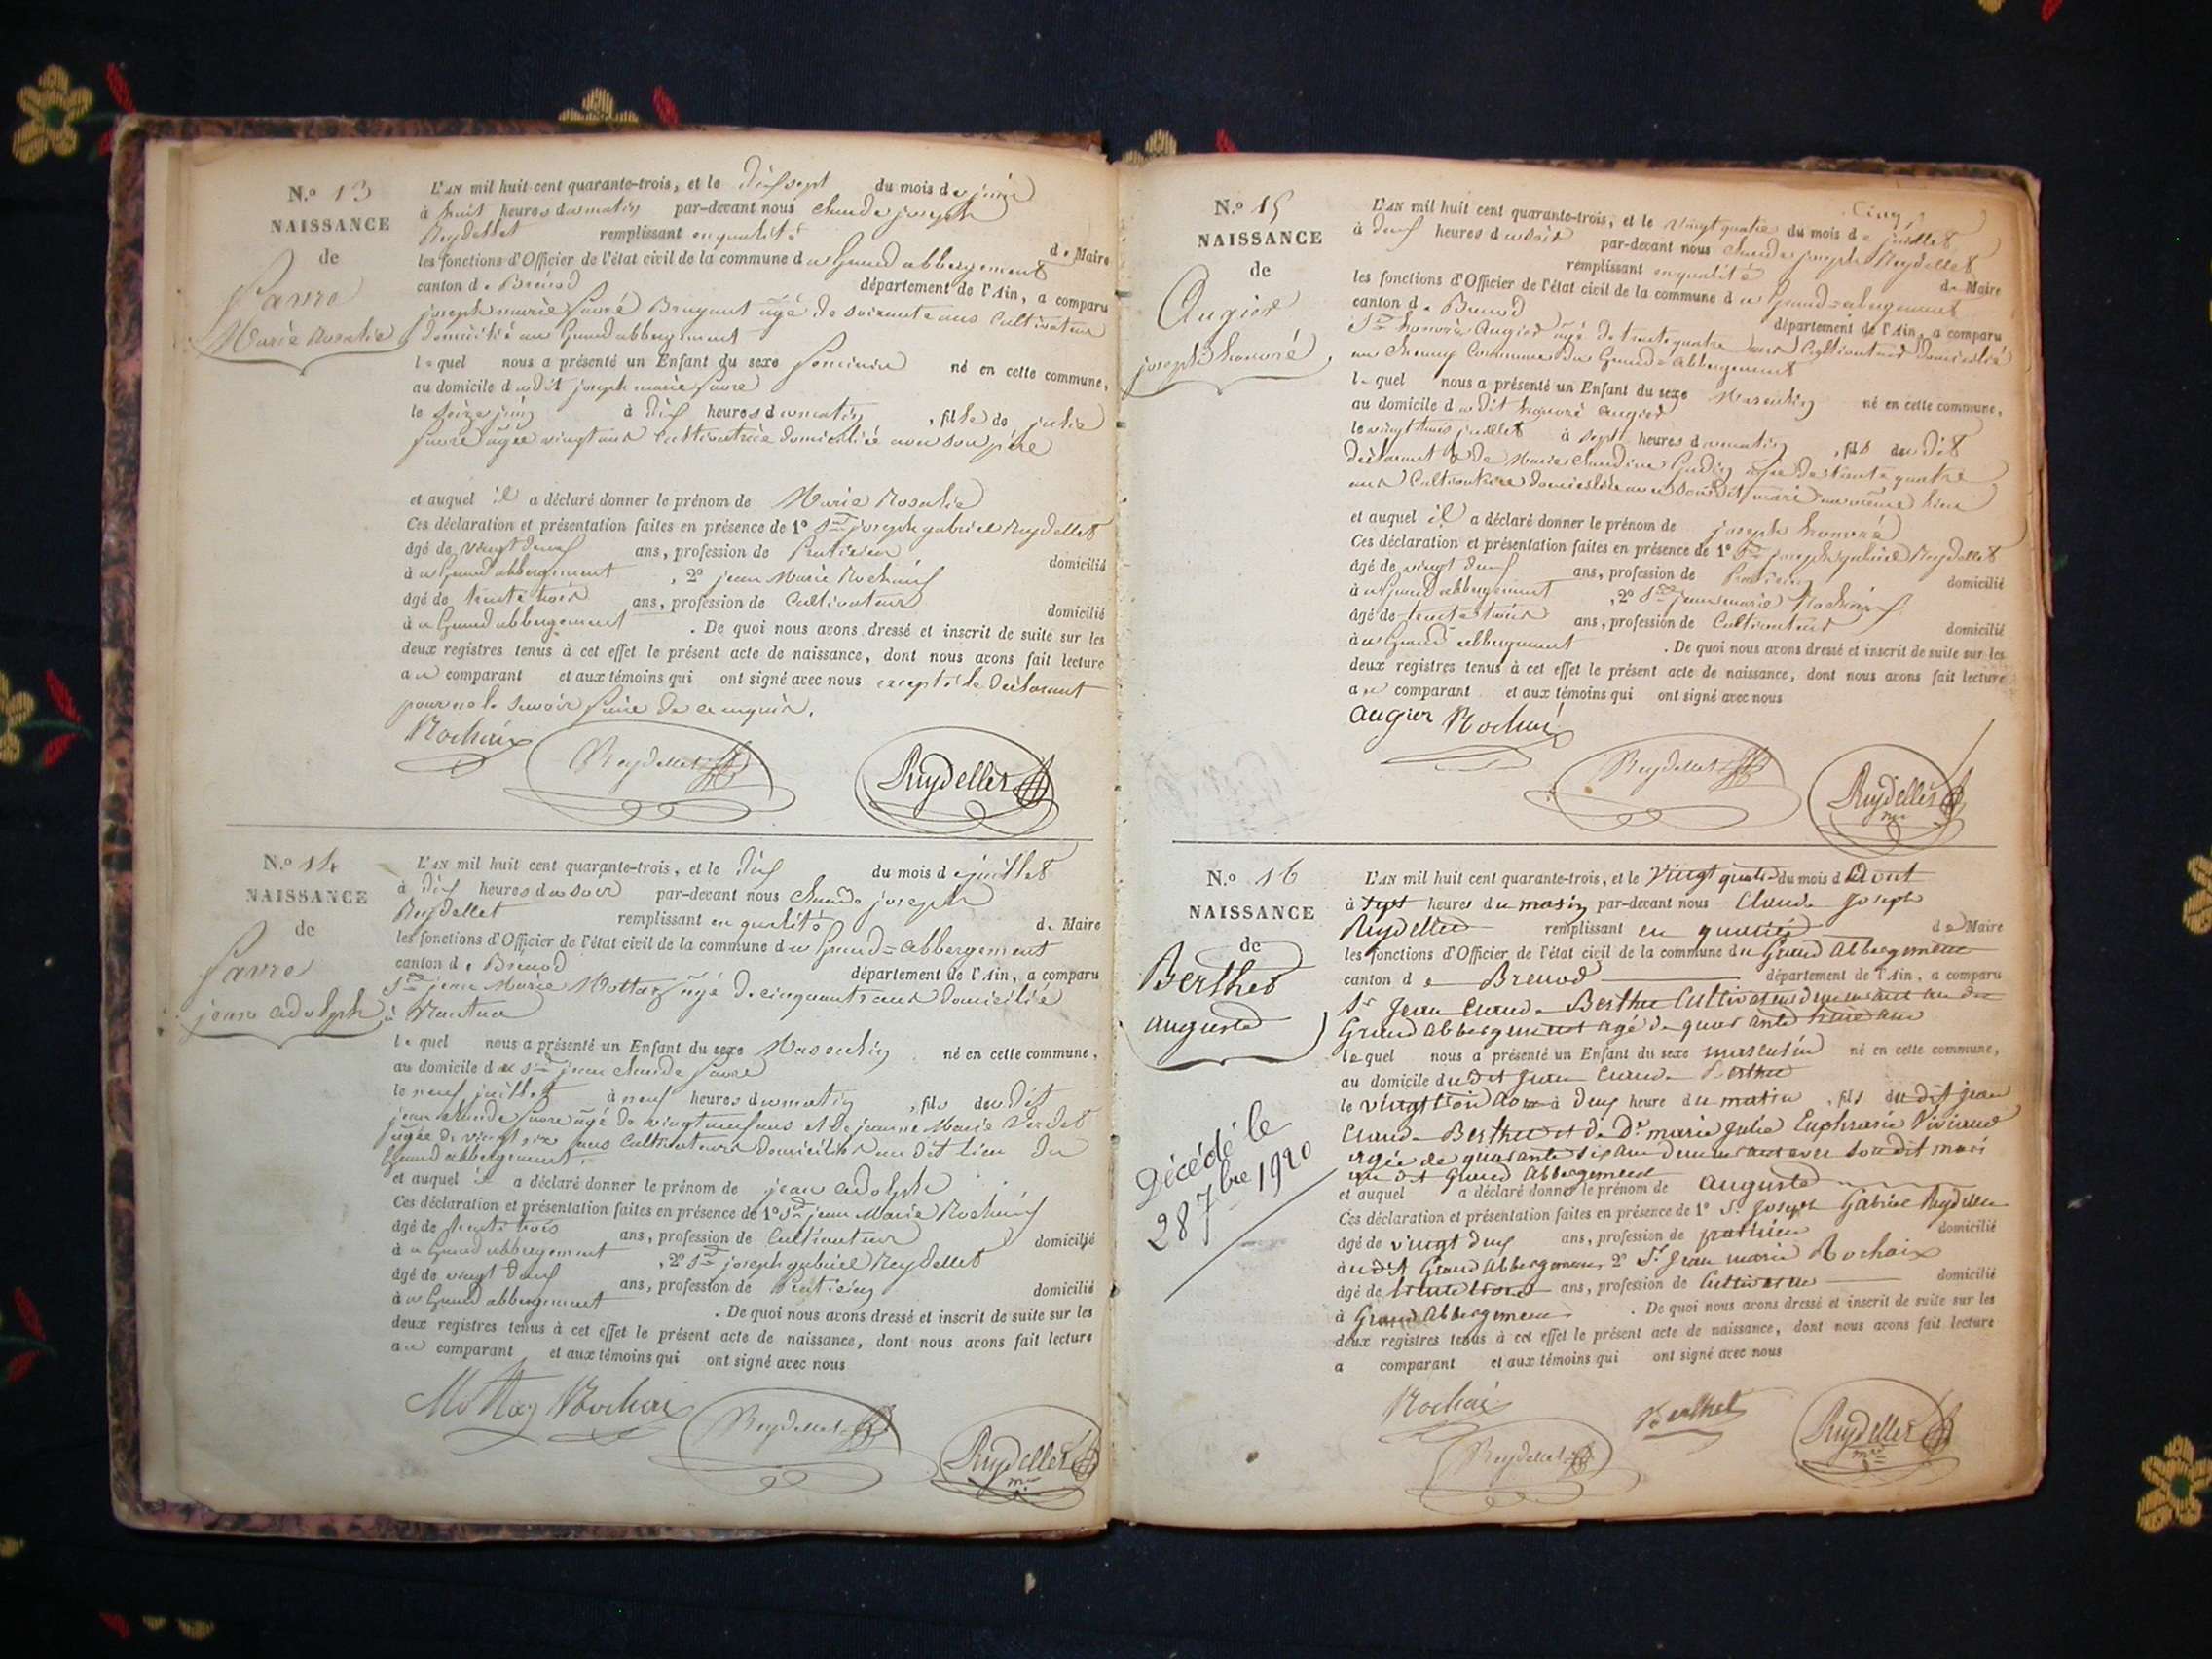 N.º 13
NAISSANCE
de
Favre
Marie Rosalie
L'AN mil huit cent quarante-trois, et le dix sept du mois de juin
à huit heures du matin par-devant nous Claude joseph
Reydellet remplissant en qualité de Maire
les fonctions d'Officier de l'état civil de la commune du Grand abbergement
canton de Brénod département de l'Ain, a comparu
joseph marie favre Brugant agé de soixante ans Cultivateur
domicilié au Grand abbergement
lequel nous a présenté un Enfant du sexe féminin né en cette commune,
au domicile dudit joseph marie favre
le seize juin à dix heures du matin, fille de julie
favre agée vingt ans Cultivatrice domiciliée avec son père
et auquel il a déclaré donner le prénom de Marie Rosalie
Ces déclaration et présentation faites en présence de 1º Sr joseph gabriel Reydellet
âgé de vingt deux ans, profession de Praticien domicilié
à u Grand abbergement, 2º jean Marie Rochaix
âgé de trente trois ans, profession de Cultivateur domicilié
à u Grand abbergement. De quoi nous avons dressé et inscrit de suite sur les
deux registres tenus à cet effet le présent acte de naissance, dont nous avons fait lecture
au comparant et aux témoins qui ont signé avec nous excepté le déclarant
pour ne le savoir faire de ce enquis.
Rochaix Reydellet Reydellet
N.º 14
NAISSANCE
de
Favre
jean adolphe
L'AN mil huit cent quarante-trois, et le dix du mois de juillet
à dix heures du soir par-devant nous Claude joseph
Reydellet remplissant en qualité de Maire
les fonctions d'Officier de l'état civil de la commune du Grand=abbergement
canton de Brénod département de l'Ain, a comparu
Sr jean Marie Mottaz agé de cinquante ans domicilié
à Nantua
lequel nous a présenté un Enfant du sexe Masculin né en cette commune,
au domicile de Sr jean claude favre
le neuf juillet à neuf heures du matin, fils dudit
jean claude favre agé de vingt neuf ans et de jeanne Marie Verdet
agée de vingt six ans Cultivateurs domiciliés au dit lieu du
Grand abbergement.
et auquel il a déclaré donner le prénom de jean adolphe
Ces déclaration et présentation faites en présence de 1º Sr jean Marie Rochaix
âgé de trente trois ans, profession de Cultivateur domicilié
à u Grand abbergement, 2º Sr joseph gabriel Reydellet
âgé de vingt deux ans, profession de Praticien domicilié
à u Grand abbergement. De quoi nous avons dressé et inscrit de suite sur les
deux registres tenus à cet effet le présent acte de naissance, dont nous avons fait lecture
au comparant et aux témoins qui ont signé avec nous
Mottaz Rochaix Reydellet Reydellet mre
Cinq
N.º 15
NAISSANCE
de
Augier
joseph honoré
L'AN mil huit cent quarante-trois, et le vingt quatre du mois de juillet
à deux heures du soir par-devant nous Claude joseph Reydellet
remplissant en qualité de Maire
les fonctions d'Officier de l'état civil de la commune du Grand=abergement
canton de Brenod département de l'Ain, a comparu
Sr honoré Augier agé de trente quatre ans Cultivateur domicilié
au Commune du Grand=Abbergement
lequel nous a présenté un Enfant du sexe Masculin né en cette commune,
au domicile dudit honoré augier
le vingt trois juillet à sept heures du matin, fils dudit
déclarant & de Marie Claudine agée de trente quatre
ans Cultivatrice domiciliée avec son dit mari au même lieu
et auquel il a déclaré donner le prénom de joseph honoré
Ces déclaration et présentation faites en présence de 1º Sr joseph gabriel Reydellet
âgé de vingt deux ans, profession de Praticien domicilié
à u Grand abbergement, 2º Sr jean marie Rochaix
âgé de trente trois ans, profession de Cultivateur domicilié
à u Grand abbergement. De quoi nous avons dressé et inscrit de suite sur les
deux registres tenus à cet effet le présent acte de naissance, dont nous avons fait lecture
au comparant et aux témoins qui ont signé avec nous
augier Rochaix
Reydellet Reydellet mre
N.º 16
NAISSANCE
de
Berthet
auguste
Décédé le
28 7bre 1920
L'AN mil huit cent quarante-trois, et le vingt quatre du mois d Aout
à sept heures du matin par-devant nous Claude Joseph
Reydellet remplissant en qualité de Maire
les fonctions d'Officier de l'état civil de la commune du Grand Abbergement
canton de Brenod département de l'Ain, a comparu
Sr Jean Claude Berthet Cultivateur demeurant au dit
Grand Abbergement agé de quarante ans
lequel nous a présenté un Enfant du sexe masculin né en cette commune,
au domicile dudit Jean Claude Berthet
le vingt trois aout à deux heure du matin, fils dudit jean
Claude Berthet et de De marie Julie Euphrasie Viviand
agée de quarante six ans demeurant avec son dit mari
au dit Grand Abbergement
et auquel a déclaré donner le prénom de auguste
Ces déclaration et présentation faites en présence de 1º Sr Joseph Gabriel Reydellet
âgé de vingt deux ans, profession de praticien domicilié
à udit Grand Abbergement, 2º Sr Jean marie Rochaix
âgé de trente trois ans, profession de Cultivateur domicilié
à Grand Abbergement. De quoi nous avons dressé et inscrit de suite sur les
deux registres tenus à cet effet le présent acte de naissance, dont nous avons fait lecture
a comparant et aux témoins qui ont signé avec nous
Rochaix Berthet Reydellet mre
Reydellet